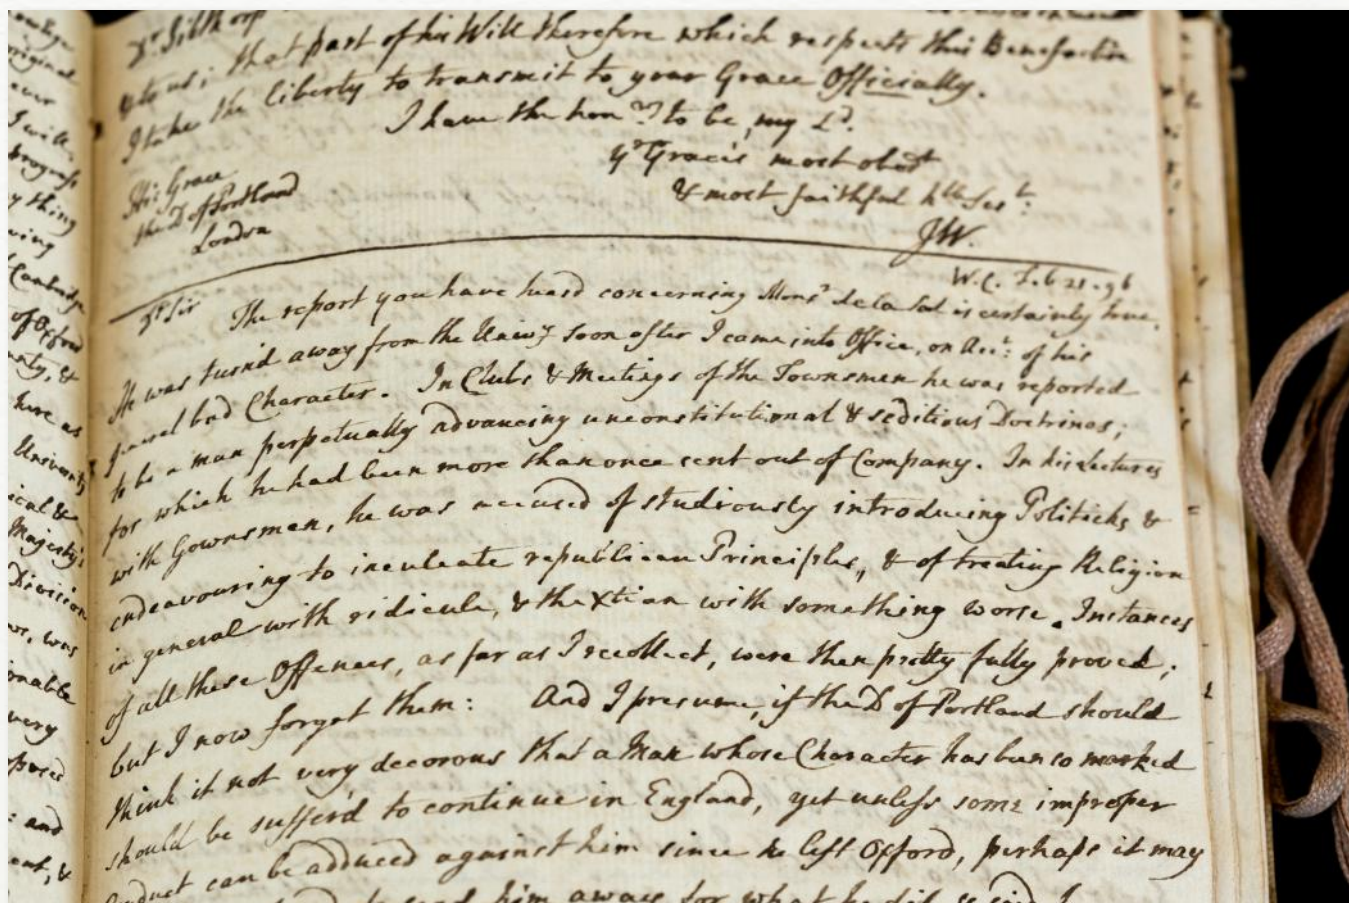 Dr. Sibthorp
to us; that part of his Will therefore which respects this Benefaction
I take the liberty to transmit to your Grace Officially.
I have the honr. to be, my Ld.
yr Grace's most obedt
& most faithful hble Sert:
JW.
His Grace
the D of Portland
London
W.C. Feb 21. 96
Dr Sir The report you have heard concerning Monsr de la Sol is certainly true.
He was turn'd away from the Univy soon after I came into Office, on Acct: of his
general bad Character. In Clubs & Meetings of the Townsmen he was reported
to be a man perpetually advancing unconstitutional & seditious Doctrines;
for which he had been more than once sent out of Company. In his Lectures
with Gownsmen, he was accused of studiously introducing Politicks &
endeavouring to inculcate republican Principles, & of treating Religion
in general with ridicule, & the Xtian with something worse. Instances
of all these Offences, as far as I recollect, were then pretty fully proved;
but I now forget them: And I presume, if the D of Portland should
think it not very decorous that a Man whose Character has been so marked
should be suffer'd to continue in England, yet unless some improper
conduct can be adduced against him since he left Oxford, perhaps it may
him away for what he did
ever
I will
progress
y thing
Cambridge
of Oxford
&
here as
University
ical &
Majesty's
Division
was
onable
very
: and
ent, &